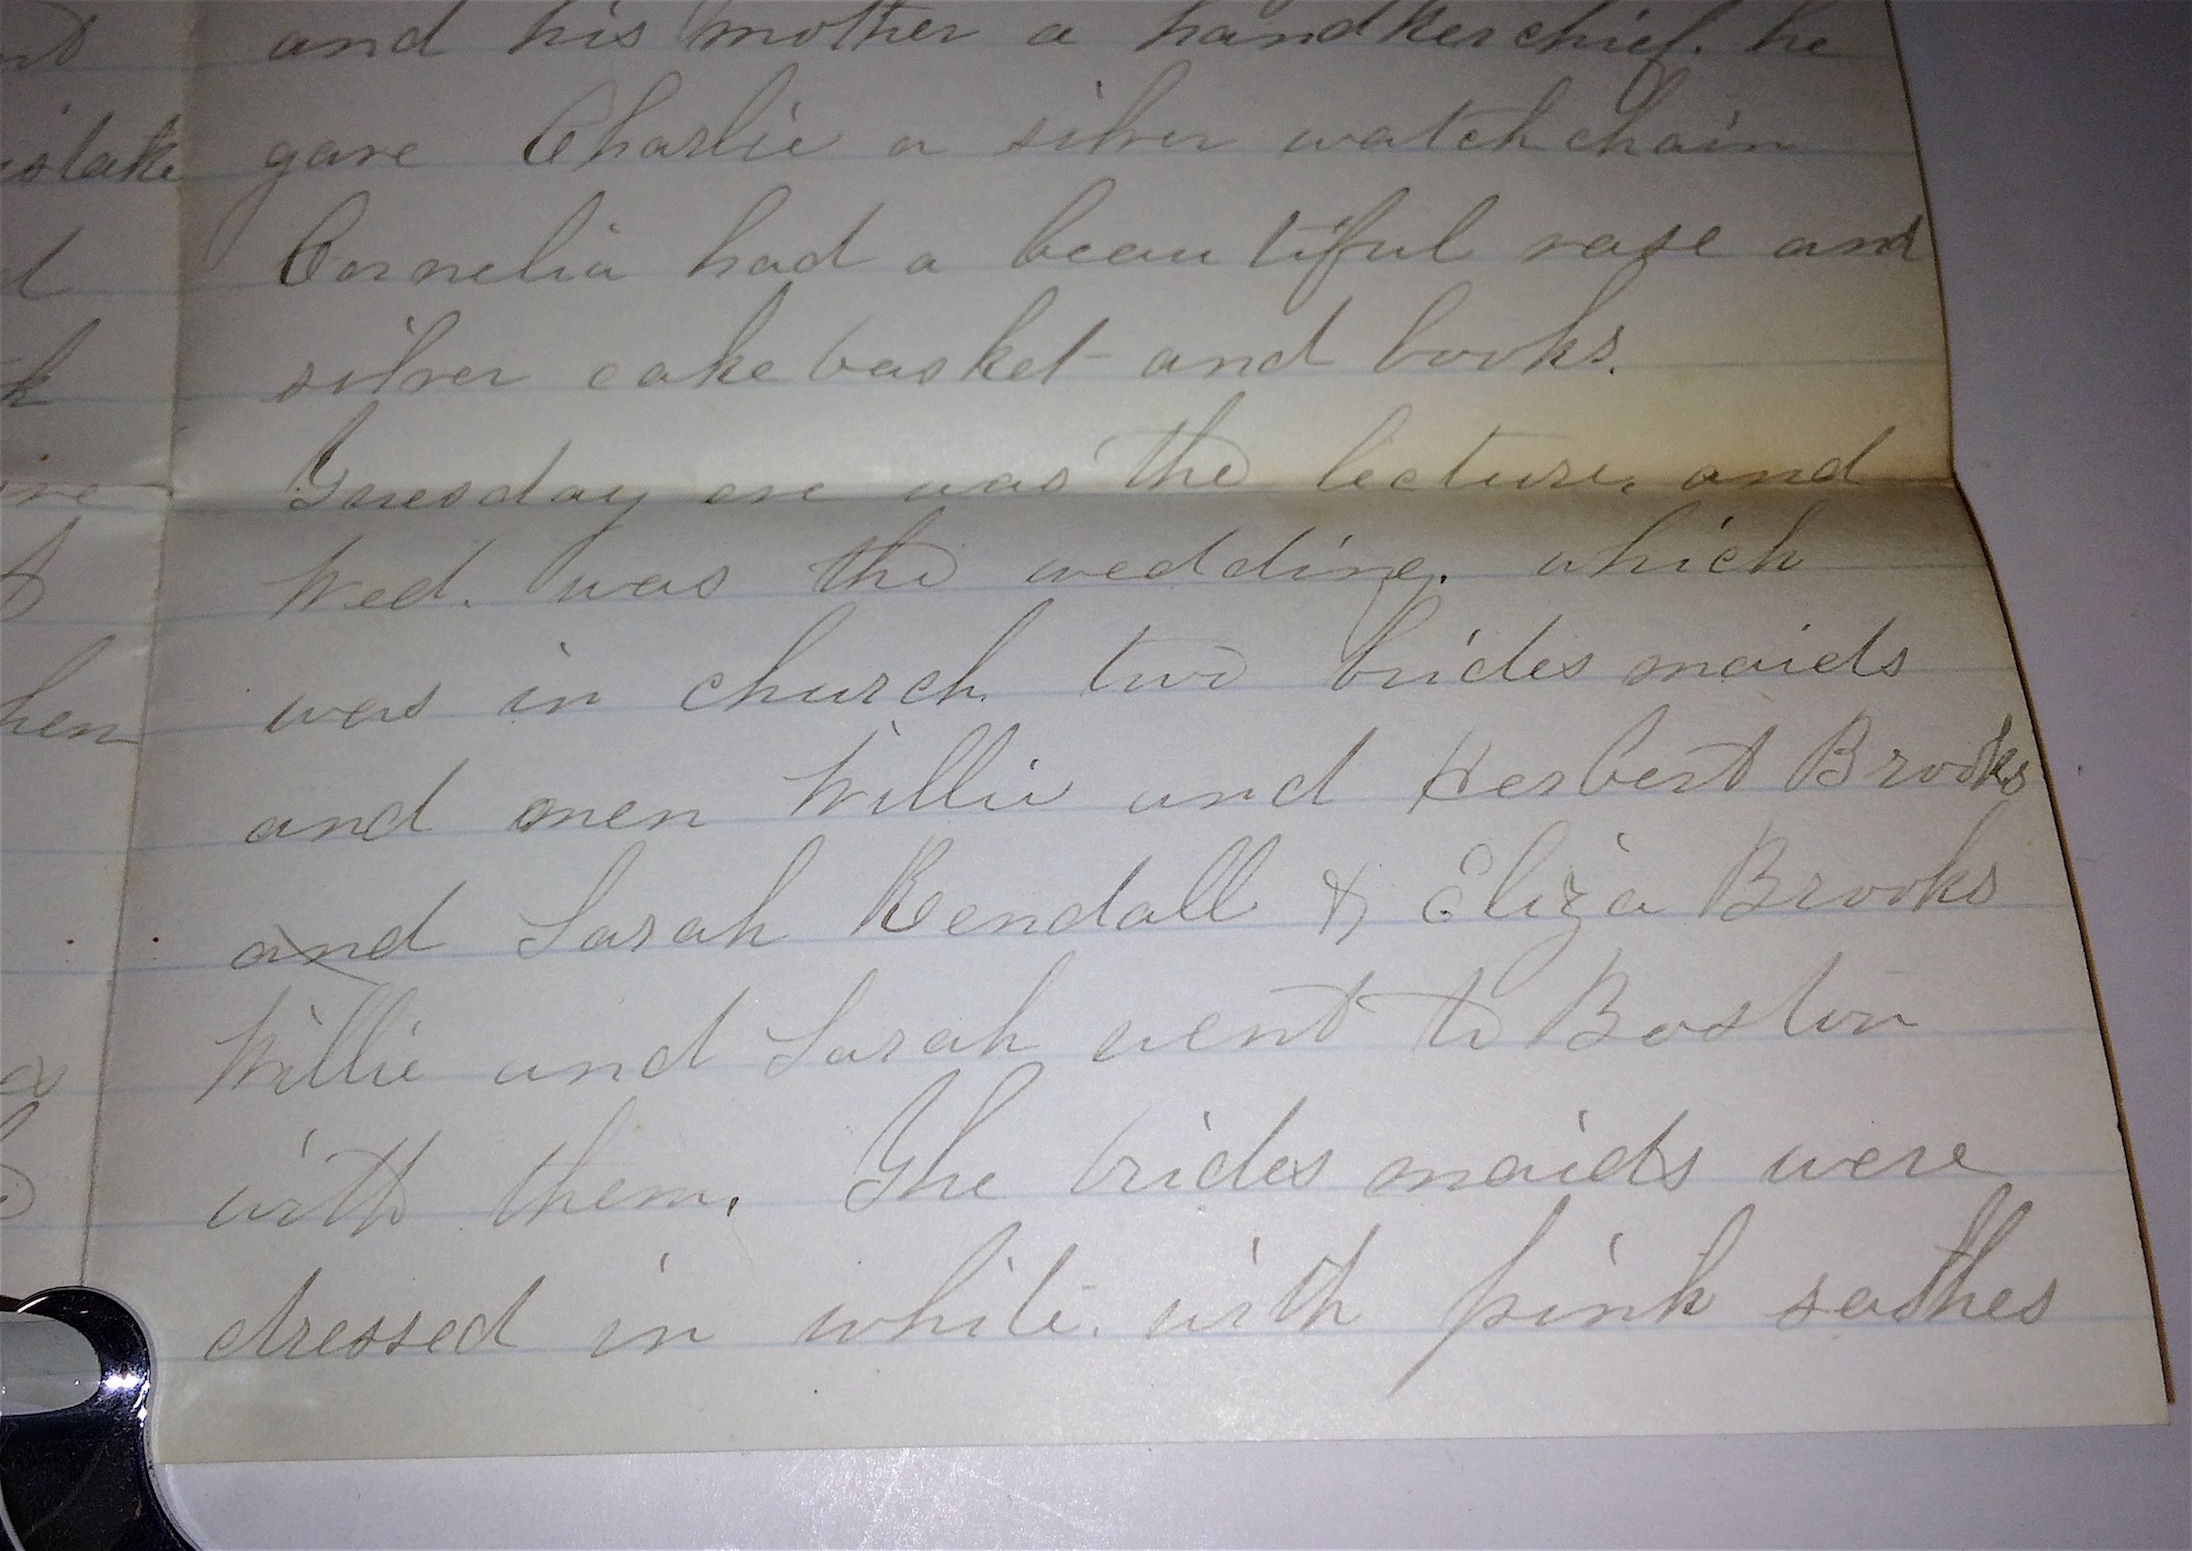 and his mother a handkerchief. he
gave Charlie a silver watch chain
Cornelia had a beautiful vase and
silver cake basket and books.
Tuesday eve was the lecture, and
Wed. was the wedding. which
was in church two brides maids
and men Willie and Herbert Brooks
and Sarah Kendall & Eliza Brooks
Willie and Sarah went to Boston
with them. The brides maids were
dressed in white. with pink sashes